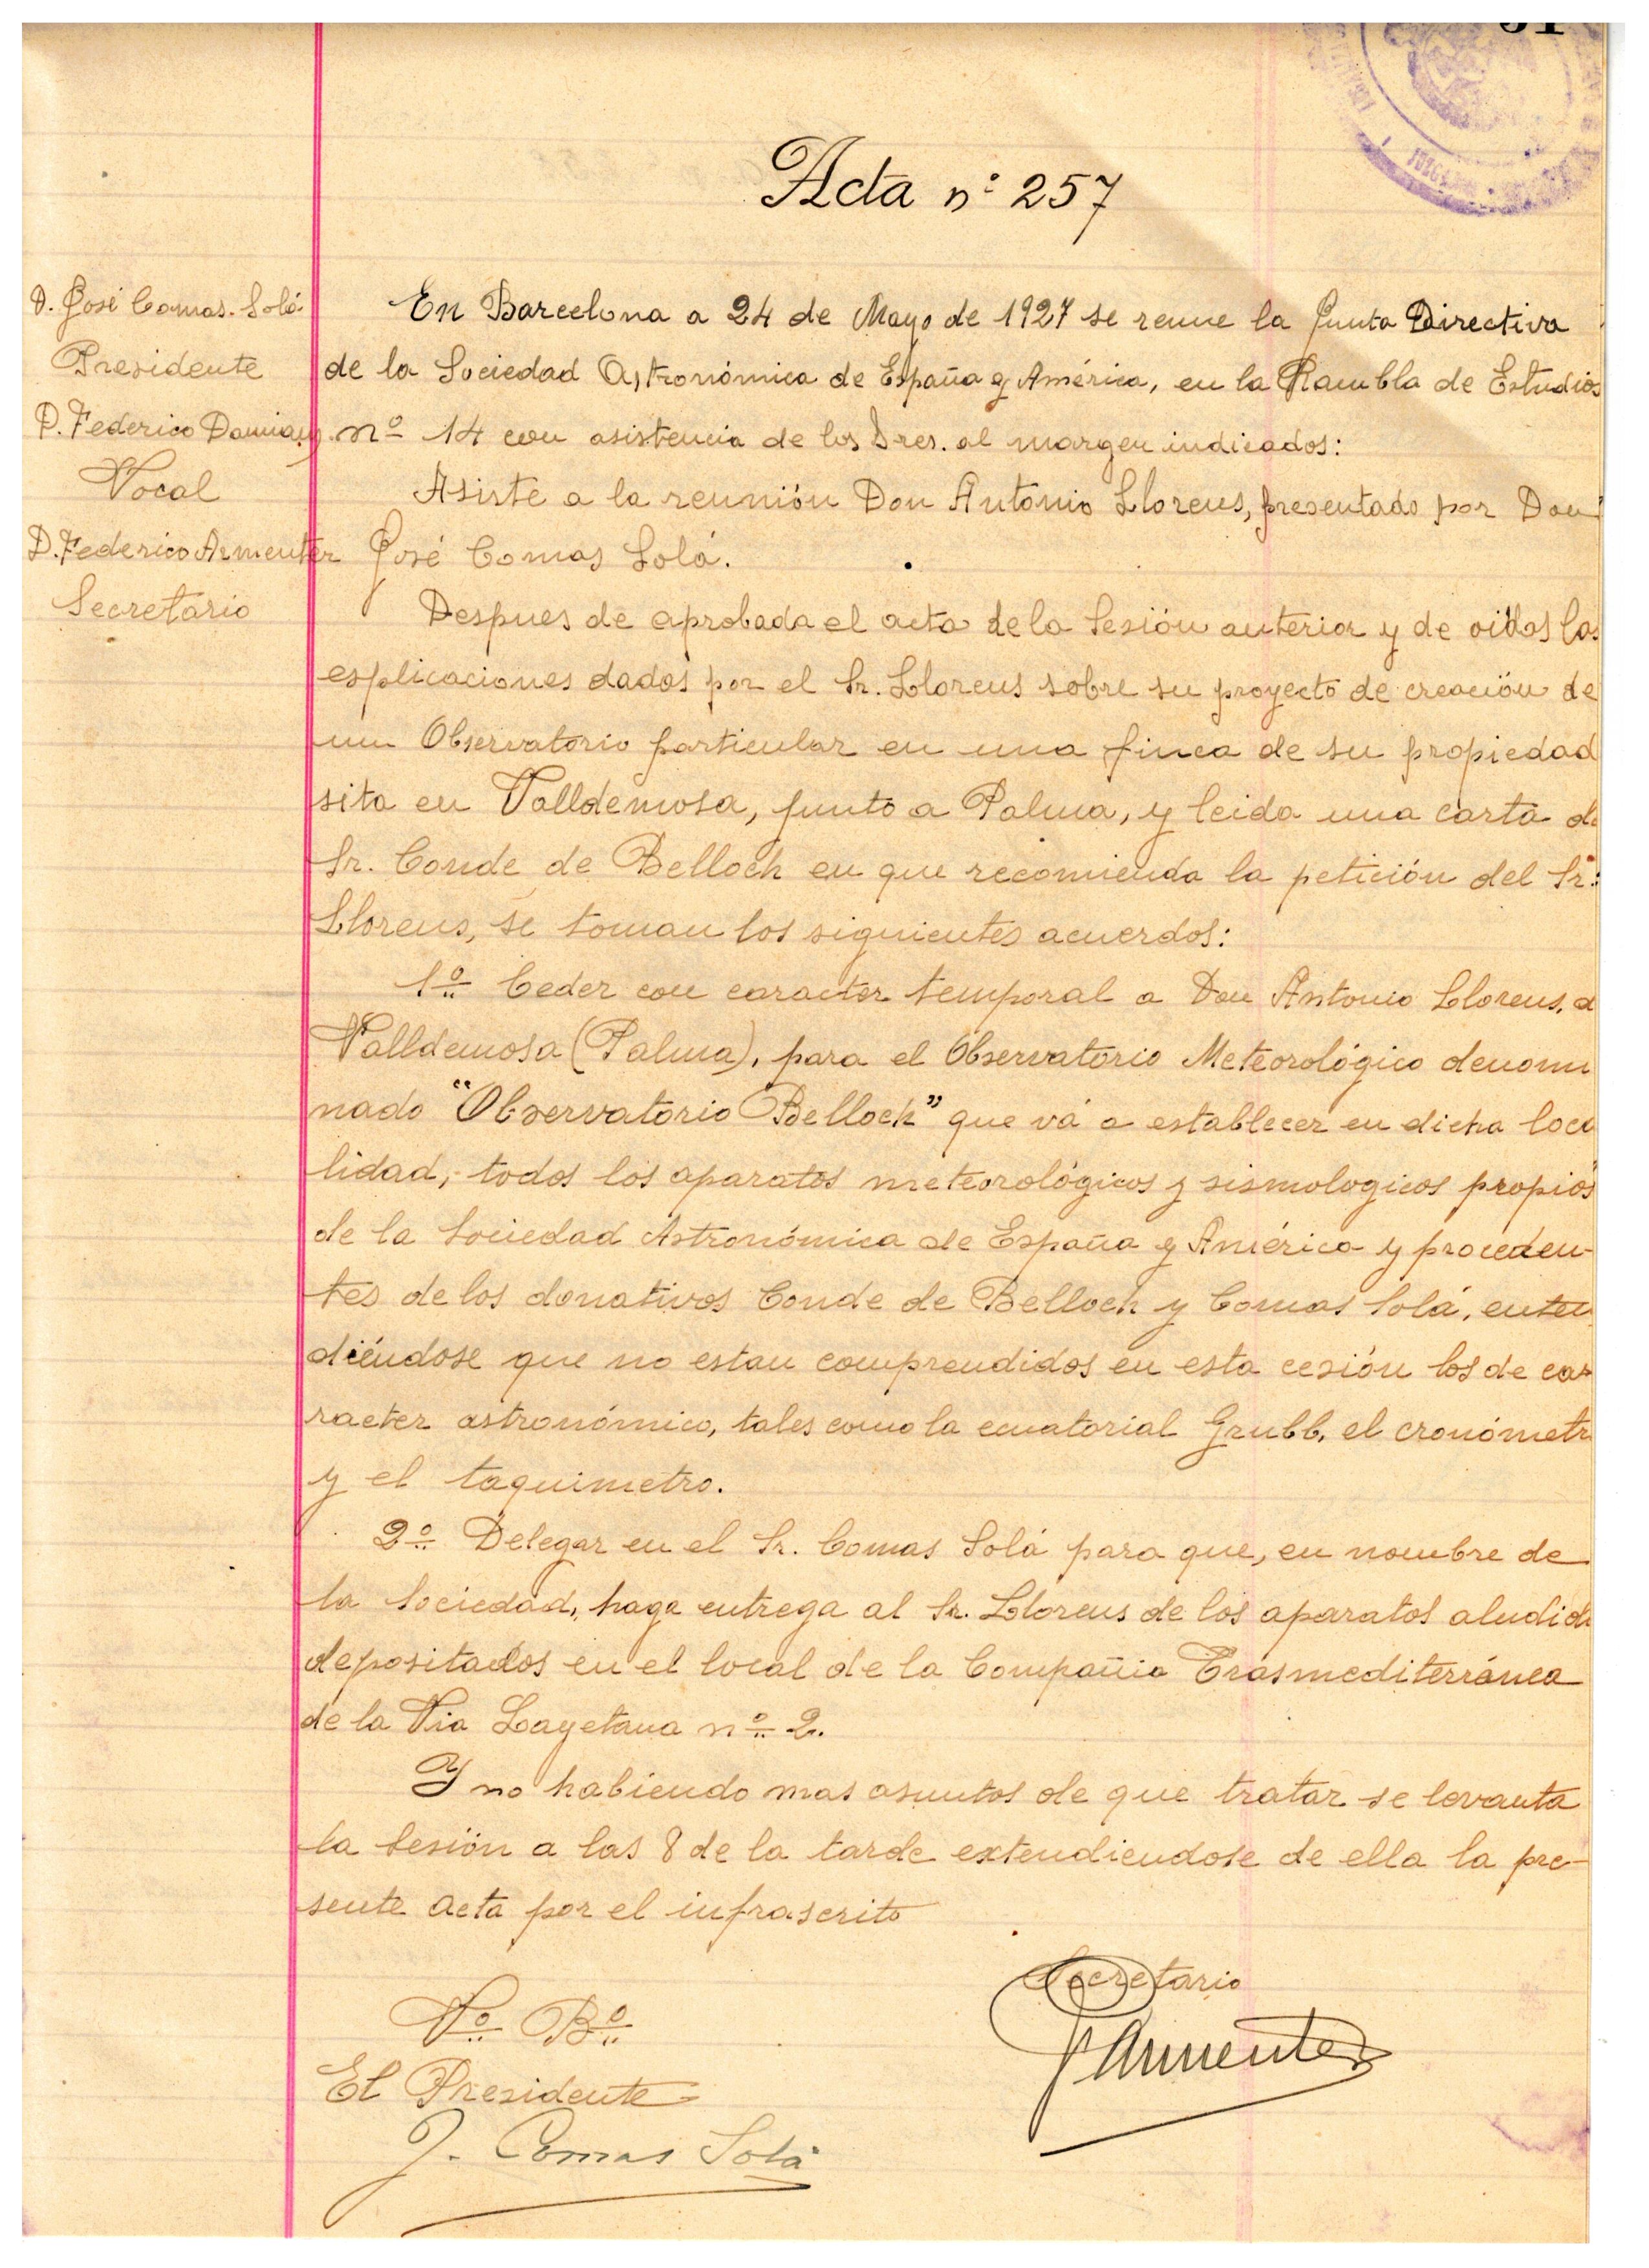 Acta nº 257
D. José Comas Solá
Presidente
D. Federico Damians
Vocal
D. Federico Armenter
Secretario
En Barcelona a 24 de Mayo de 1927 se reune la Junta Directiva
de la Sociedad Astronómica de España y América, en la Rambla de Estudios
nº 14 con asistencia de los Sres. al margen indicados:
Asiste a la reunión Don Antonio Llorens, presentado por Don
José Comas Solá.
Despues de aprobada el acta de la Sesión anterior y de oidas las
esplicaciones dadas por el Sr. Llorens sobre su proyecto de creación de
un Observatorio particular en una finca de su propiedad
sita en Valldemosa, junto a Palma, y leida una carta de
Sr. Conde de Belloch en que recomienda la petición del Sr.
Llorens, se toman los siguientes acuerdos:
1º Ceder con caracter temporal a Don Antonio Llorens, d
Valldemosa (Palma), para el Observatorio Meteorológico denomi
nado "Observatorio Belloch" que vá a establecer en dicha loca
lidad, todos los aparatos meteorológicos y sismologicos propios
de la Sociedad Astronómica de España y América y proceden-
tes de los donativos Conde de Belloch y Comas Solá, enten
diéndose que no estan comprendidos en esta cesión los de ca-
racter astronómico, tales como la ecuatorial Grubb, el cronómetr
y el taquimetro.
2º Delegar en el Sr. Comas Solá para que, en nombre de
la Sociedad, haga entrega al Sr. Llorens de los aparatos aludido
depositados en el local de la Compañia Trasmediterránea
de la Via Layetana nº 2.
Y no habiendo mas asuntos de que tratar se levanta
la Sesión a las 8 de la tarde extendiendose de ella la pre-
sente acta por el infrascrito
Secretario
F Armenter
Vº Bº
El Presidente
J. Comas Solá